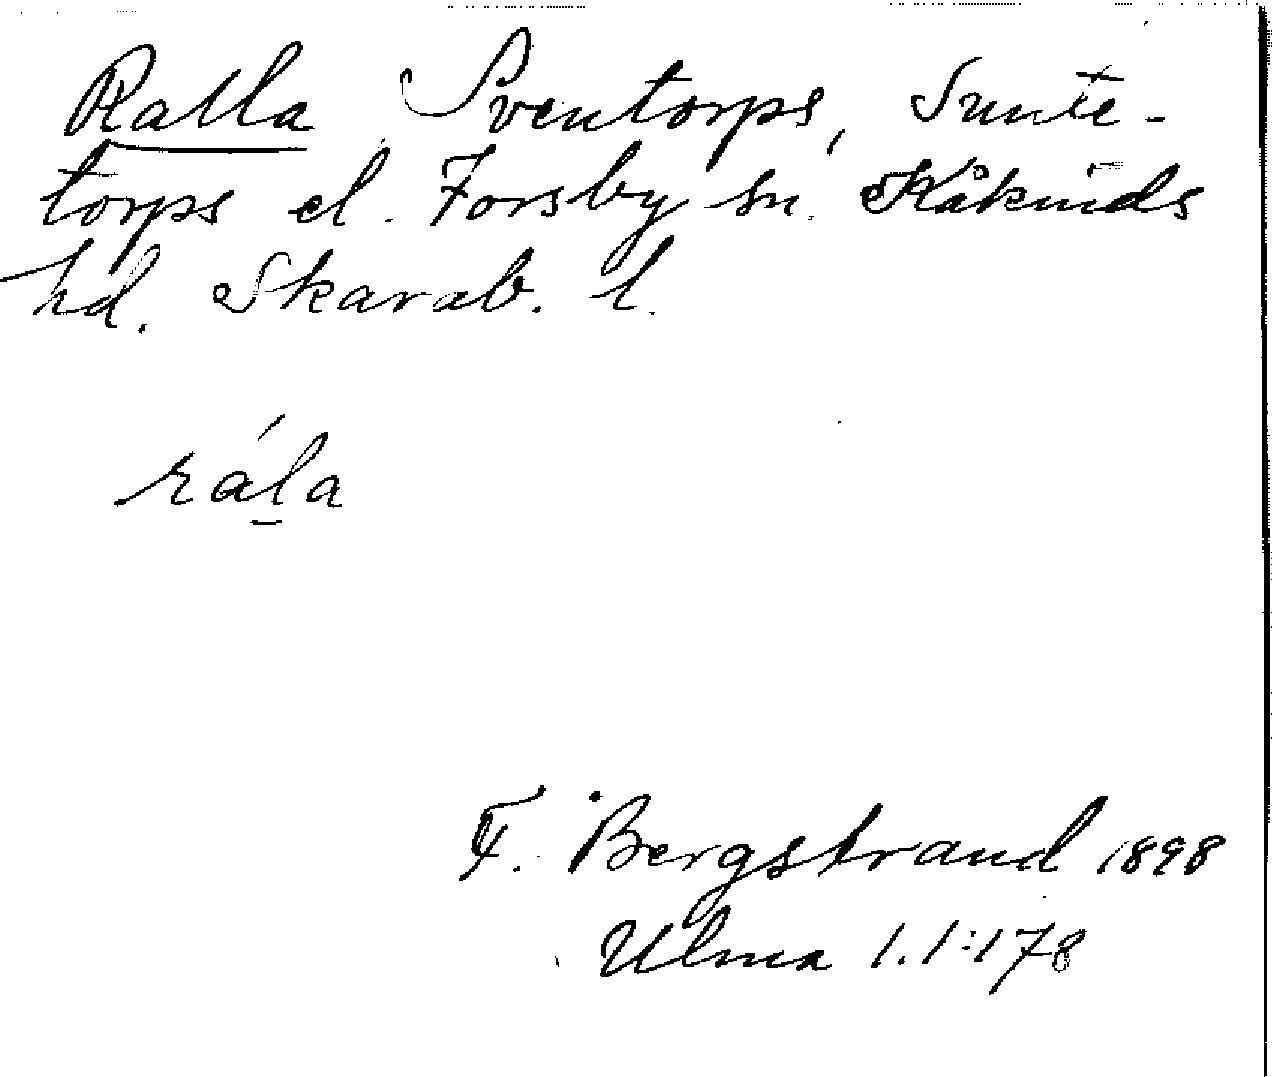 Ralla Sventorps, Sunte-
torps el. Forsby sn. Kåkinds
hd. Skarab. l.
rála
F. Bergstrand 1898
Ulma 1.1:178